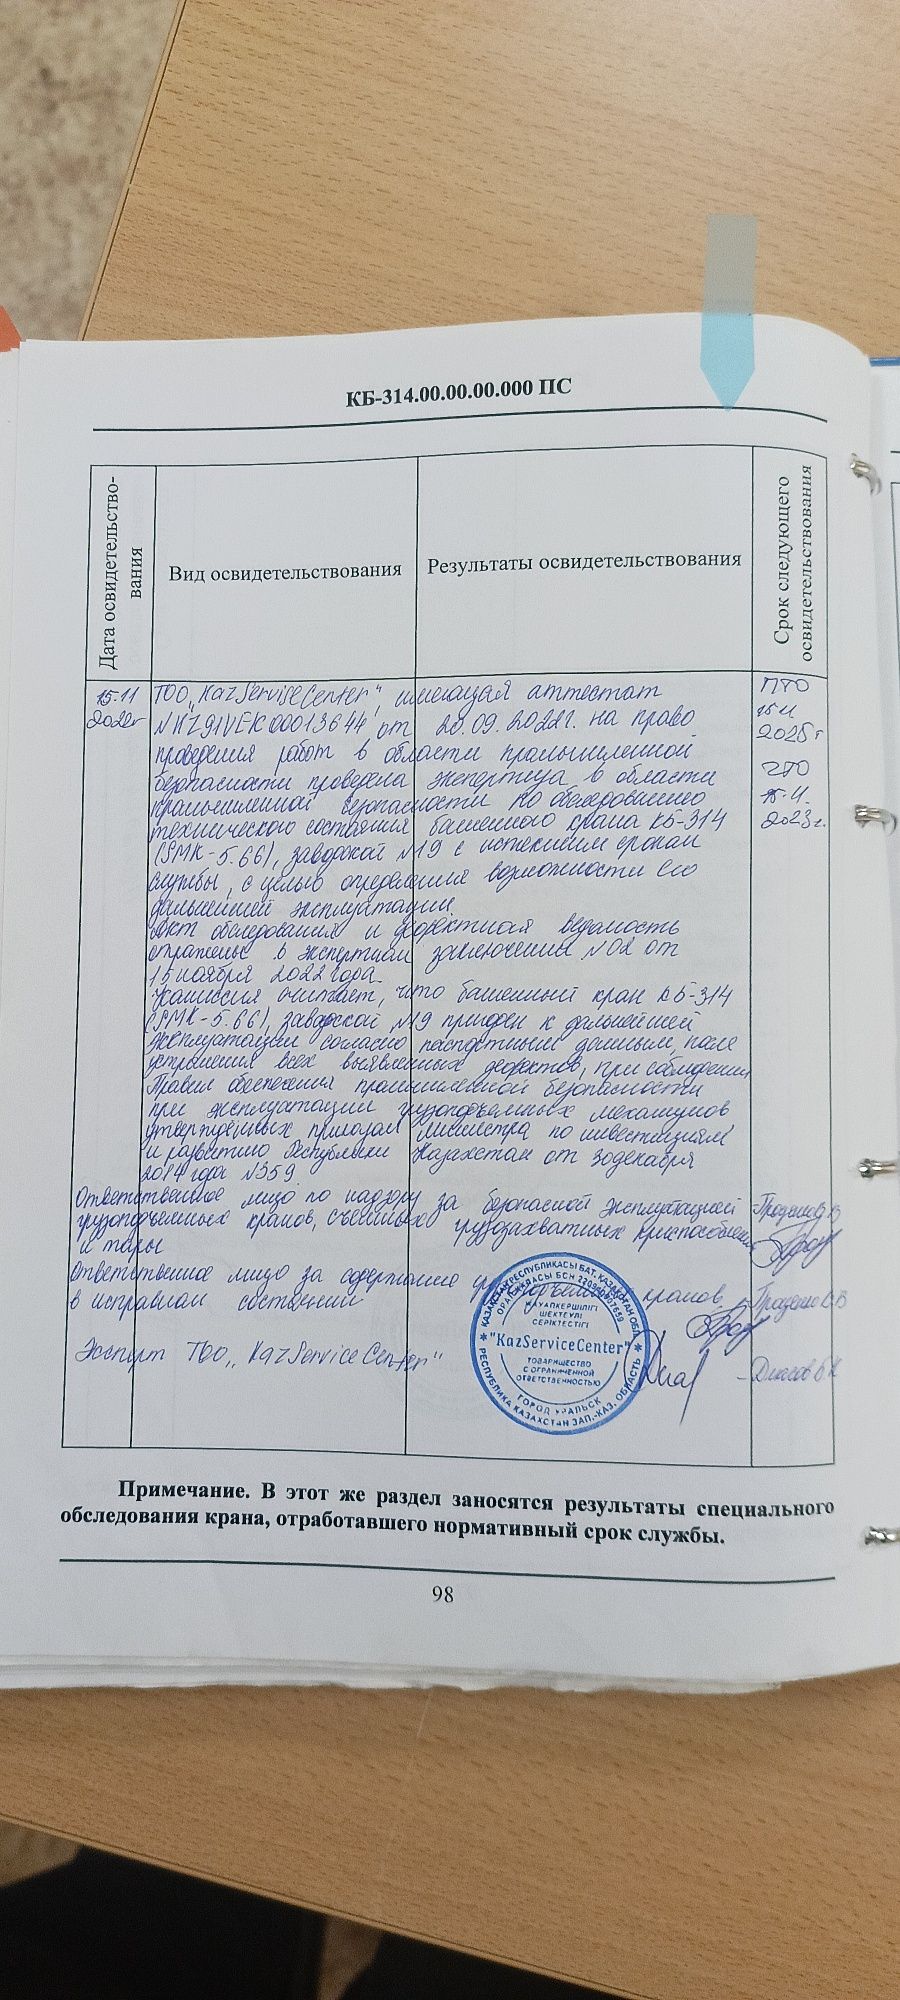 КБ-314.00.00.00.000 ПС
Дата освидетельство-
вания
Вид освидетельствования
Результаты освидетельствования
Срок следующего
освидетельствования
15.11
2022г
ТОО „KazServiseCenter", имеющая аттестат
№KZ91VEK00013644 от 20.09.2022г. на право
проведения работ в области промышленной
безопасности проведена экспертиза в области
промышленной безопасности по обследованию
технического состояния башенного крана КБ-314
(SMK-5.66), заводской №19 с истекшим сроком
службы, с целью определения возможности его
дальнейшей эксплуатации.
Акт обследования и дефектная ведомость
отражены в экспертном заключении №02 от
15 ноября 2022 года.
Комиссия считает, что башенный кран КБ-314
(SMK-5.66), заводской №19 пригоден к дальнейшей
эксплуатации согласно паспортным данным, после
устранения всех выявленных дефектов, при соблюдении
Правил обеспечения промышленной безопасности
при эксплуатации грузоподъемных механизмов
утвержденных приказом Министра по инвестициям
и развитию Республики Казахстан от 30декабря
2014 года №359
ПТО
15.11
2025г
ЧТО
15.11.
2023г.
Ответственное лицо по надзору за безопасной эксплуатацией
грузоподъемных кранов, съемных грузозахватных приспособлений
и тары
Ответственное лицо за содержание грузоподъемных кранов
в исправном состоянии
Эксперт ТОО „KazServiceCenter"
ҚАЗАҚСТАН РЕСПУБЛИКАСЫ БАТ. ҚАЗАҚСТАН ОБЛ.
ОРАЛ ҚАЛАСЫ БСН
ЖАУАПКЕРШІЛІГІ
ШЕКТЕУЛІ
СЕРІКТЕСТІГІ
"KazServiceCenter"
ТОВАРИЩЕСТВО
С ОГРАНИЧЕННОЙ
ОТВЕТСТВЕННОСТЬЮ
ГОРОД УРАЛЬСК
РЕСПУБЛИКА КАЗАХСТАН ЗАП.-КАЗ. ОБЛАСТЬ
Примечание. В этот же раздел заносятся результаты специального
обследования крана, отработавшего нормативный срок службы.
98